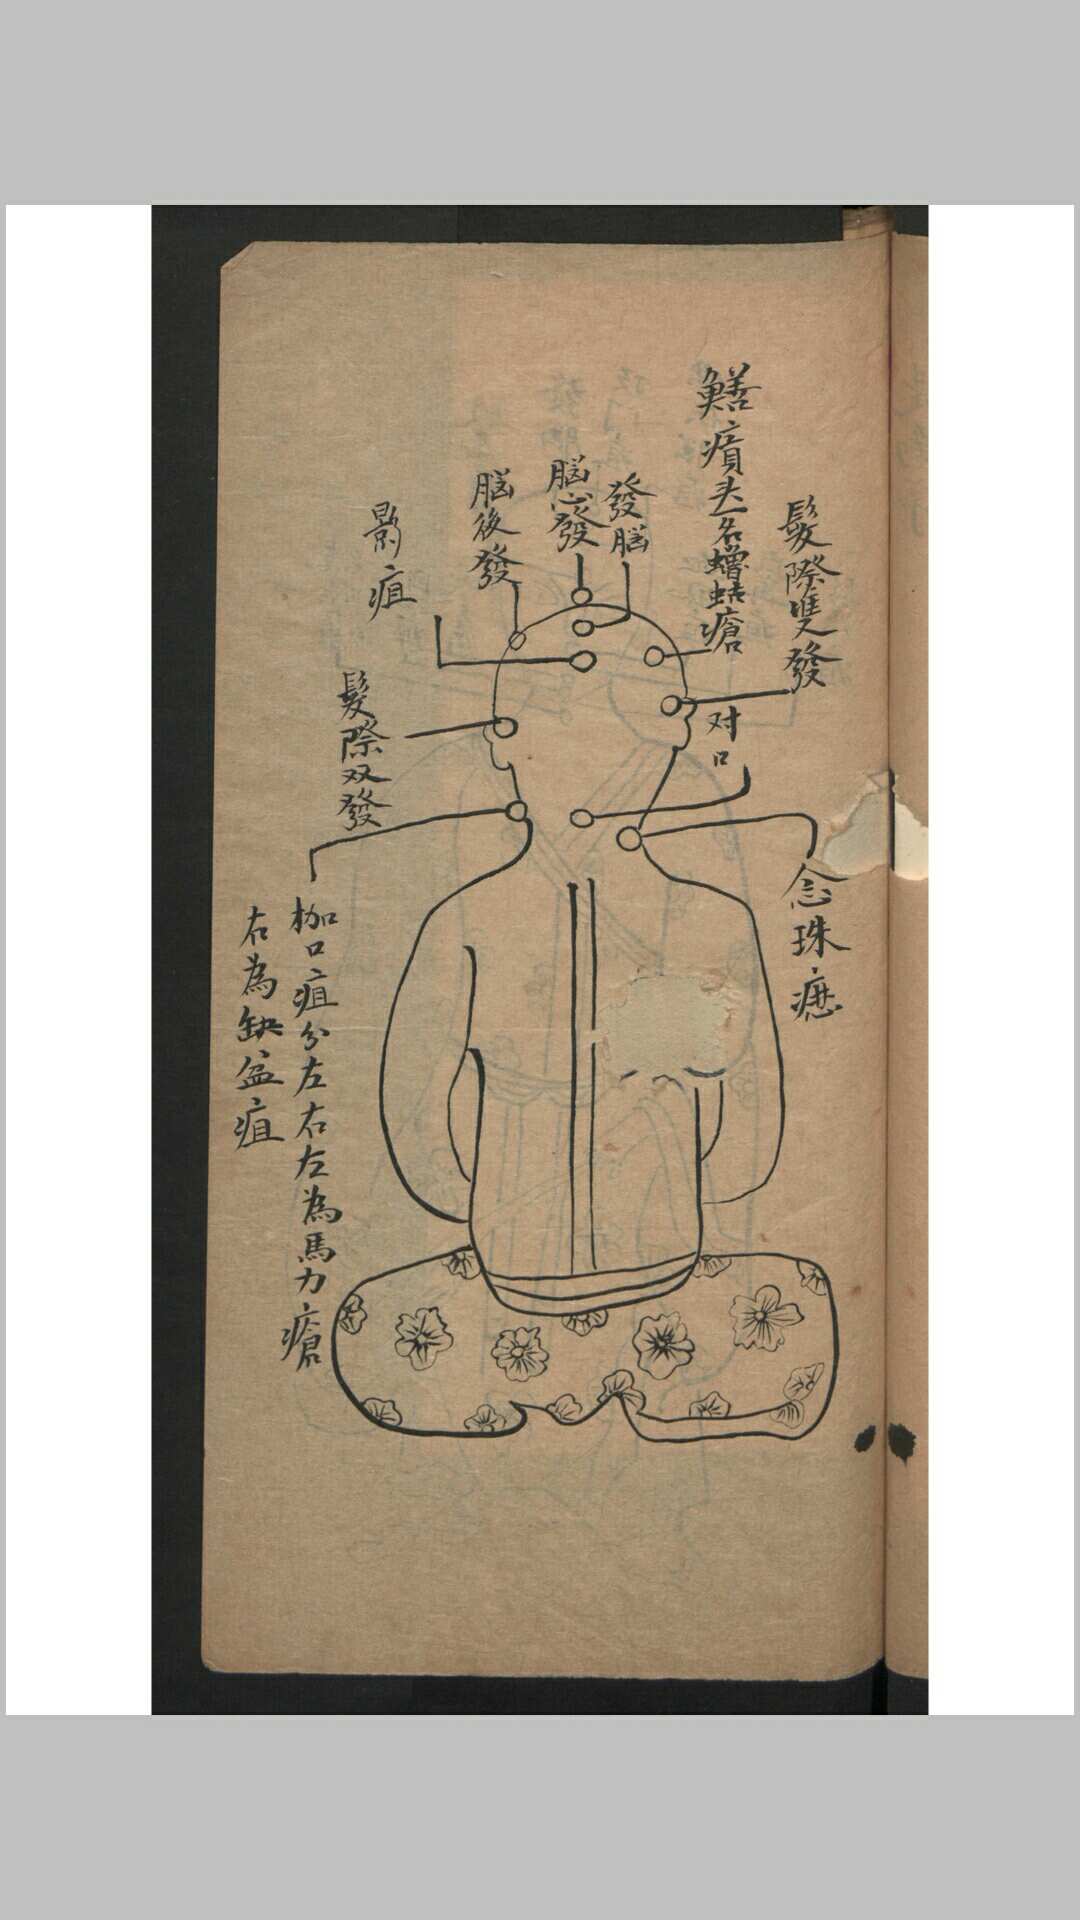 髮際雙發
鱔㿉头一名螬蛄瘡
对口
念珠瘪
發脳
脳心發
脳後發
疽
髮際双發
枷口疽分左右左為馬刀瘡
右為缺盆疽